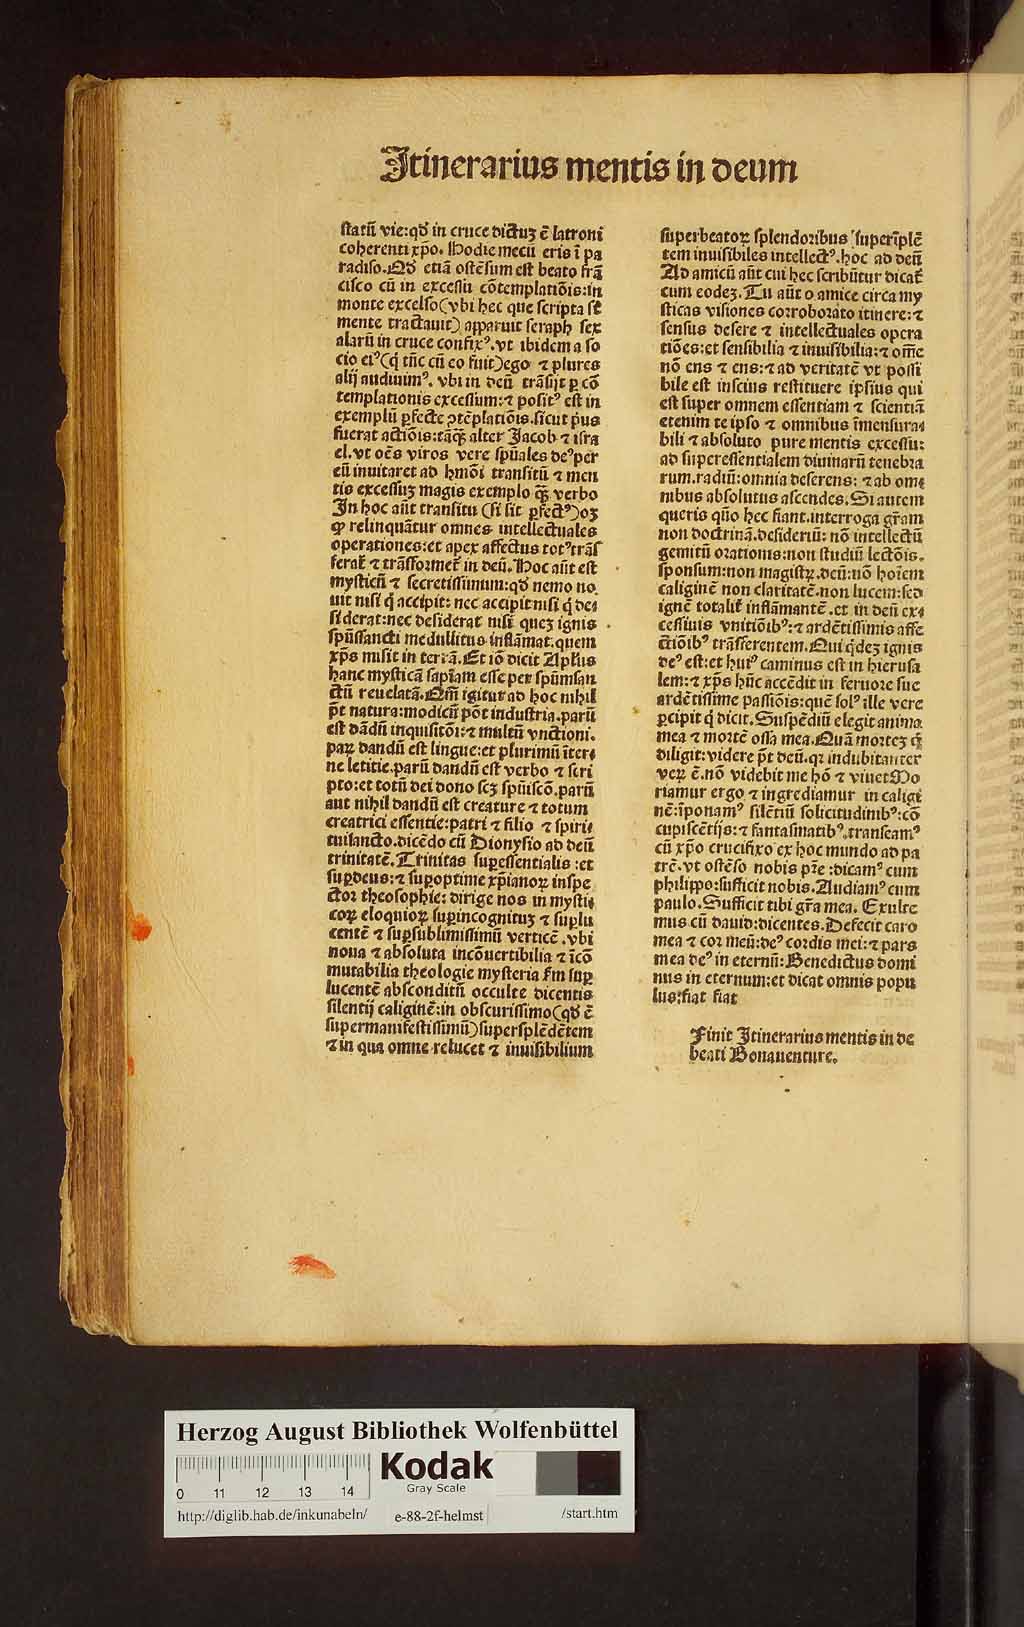 Itinerarius mentis in deum
statū vie: qđ in cruce dictuʒ ē latroni
coherenti xp̄o. Hodie mecū eris ī pa
radiso. Qđ etiā ostēsum est beato frā
cisco cū in excessu cōtemplatiōis: in
monte excelso (vbi hec que scripta sūt
mente tractauit) apparuit seraph sex
alarū in cruce confixꝰ. vt ibidem a so
cio eiꝰ (q̇ tūc cū eo fuit) ego ⁊ plures
alij audiuimꝰ. vbi in deū trāsijt ꝑ cō
templationis excessum: ⁊ positꝰ est in
exemplū ꝑfecte ꝯtēplatiōis. sicut pͥus
fuerat actiōis: tāq̄ꝫ alter Jacob ⁊ isra
el. vt oēs viros vere spūales deꝰ per
eū inuitaret ad hmōi transitū ⁊ men
tis excessuʒ magis exemplo q̄ꝫ verbo
In hoc aūt transitu (si sit ꝑfectꝰ) oʒ
ꝙ relinquātur omnes intellectuales
operationes: et apex affectus totꝰ trāſ
ferat̉ ⁊ trāsformet̉ in deū. Hoc aūt est
mysticū ⁊ secretissimum: qđ nemo no
uit nisi q̇ accipit: nec accipit nisi q̇ de⸗
siderat: nec desiderat nisi queʒ ignis
spūssancti medullitus inflāmat: quem
xp̄s misit in terrā. Et iō dicit Apl̄us
hanc mysticā sapīam esse per spūmsan
ctū reuelatā. Qm̄ igitur ad hoc nihil
pōt natura: modicū pōt industria. parū
est dādū inquisitōi: ⁊ multū vnctioni.
paꝝ dandū est lingue: et plurimū īter⸗
ne letitie. parū dandū est verbo ⁊ scri
pto: et totū dei dono scʒ spūiscō. parū
aut nihil dandū est creature ⁊ totum
creatrici essentie: patri ⁊ filio ⁊ spiri⸗
tuisancto. dicēdo cū Dionysio ad deū
trinitatē. Trinitas suꝑessentialis: et
suꝑdeus: ⁊ suꝑoptime xp̄ianoꝝ inspe
ctor theosophie: dirige nos in mysti⸗
coꝝ eloquioꝝ suꝑincognituʒ ⁊ suꝑlu
centē ⁊ suꝑsublimissimū verticē. vbi
noua ⁊ absoluta incōuertibilia ⁊ īcō
mutabilia theologie mysteria fm suꝑ
lucentē absconditū occulte dicentis
silentij caliginē: in obscurissimo (qđ ē
supermanifestissimū) supersplēdētem
⁊ in qua omne relucet ⁊ inuisibilium
superbeatoꝝ splendoribus superīplē
tem inuisibiles intellectꝰ. hoc ad deū
Ad amicū aūt cui hec scribūtur dicat̉
cum eodeʒ. Tu aūt o amice circa my
sticas visiones corroborato itinere: ⁊
sensus desere ⁊ intellectuales opera
tiōes: et sensibilia ⁊ inuisibilia: ⁊ om̄e
nō ens ⁊ ens: ⁊ ad veritatē vt possi
bile est inscius restituere ipsius qui
est super omnem essentiam ⁊ scientiā
etenim te ipso ⁊ omnibus īmensura⸗
bili ⁊ absoluto pure mentis excessu:
ad superessentialem diuinarū tenebra
rum. radiū: omnia deserens: ⁊ ab om⸗
nibus absolutus ascendes. Si autem
queris quō hec fiant. interroga grām
non doctrinā. desideriū: nō intellectū
gemitū orationis: non studiū lectōis.
sponsum: non magistꝝ. deū: nō hoīem
caliginē non claritatē. non lucem: sed
ignē totalit̉ inflāmantē. et in deū ex⸗
cessiuis vnitiōibꝰ: ⁊ ardētissimis affe
ctiōibꝰ trāsferentem. Qui q̇deʒ ignis
deꝰ est: et huiꝰ caminus est in hierusa
lem: ⁊ xp̄s hūc accēdit in feruore sue
ardētissime passiōis: quē solꝰ ille vere
ꝑcipit q̇ dicit. Suspēdiū elegit anima
mea ⁊ mortē ossa mea. Quā morteʒ q̇
diligit: videre pōt deū. qꝛ indubitanter
veꝝ ē. nō videbit me hō ⁊ viuet Mo
riamur ergo ⁊ ingrediamur in caligi
nē: īponamꝰ silētiū solicitudinibꝰ: cō
cupiscētijs: ⁊ fantasmatibꝰ. transeamꝰ
cū xp̄o crucifixo ex hoc mundo ad pa
trē. vt ostēso nobis pr̄e: dicamꝰ cum
philippo: sufficit nobis. Audiamꝰ cum
paulo. Sufficit tibi gr̄a mea. Exulte
mus cū dauid: dicentes. Defecit caro
mea ⁊ cor meū: deꝰ cordis mei: ⁊ pars
mea deꝰ in eternū: Benedictus domi
nus in eternum: et dicat omnis popu
lus: fiat fiat
Finit Itinerarius mentis in de
beati Bonauenture.
Herzog August Bibliothek Wolfenbüttel
0 11 12 13 14
Kodak
Gray Scale
http://diglib.hab.de/inkunabeln/ e-88-2f-helmst /start.htm